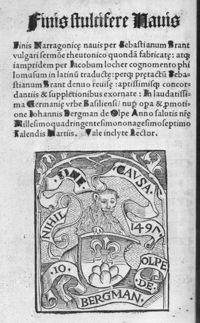 Finis stultifere Nauis
Finis Narragonice nauis per Sebastianum Brant
vulgari sermone theutonico quondā fabricate: atq̄
iampridem per Iacobum locher cognomento phi
lomusum in latinū traducte: perq̄ pretactū Seba-
stianum Brant denuo reuise: aptissimisq̄ concor-
dantiis & suppletionibus exornate: In laudatissi
ma Germanie vrbe Basiliensi: nup̄ opa & p̄motio
ne Iohannis Bergman de Olpe Anno salutis nr̄e
Millesimoquadringentesimononagesimoseptimo
Kalendis Martiis. Vale inclyte lector.
NIHIL
SINE
CAVSA
1497
.IO.
BERGMAN.
DE.
OLPE